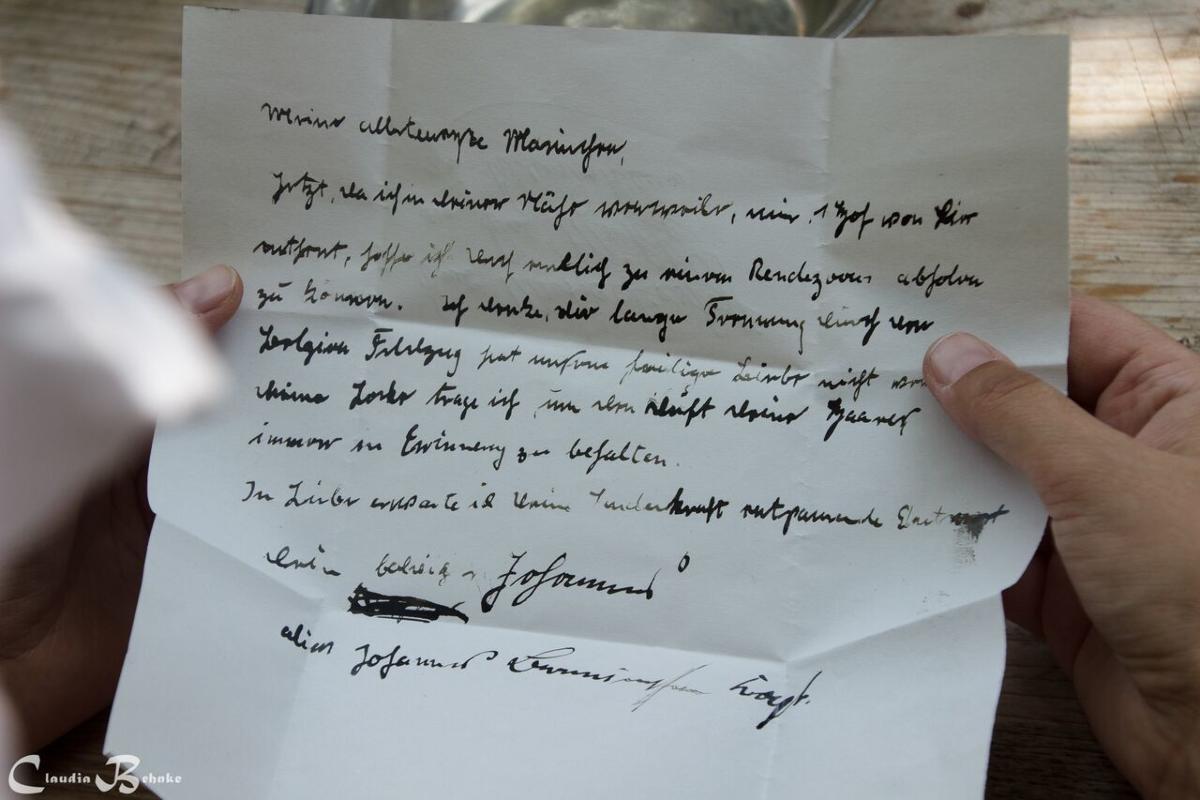 Meine allerteuerste Marinchen,
Jetzt, da ich in deiner Nähe verweile, nur 1 Hof von Dir
entfernt, hoffe ich Dich endlich zu einem Rendezvous abholen
zu können. Ich denke, die lange Trennung durch den
Feldzug hat unsere heilige Liebe nicht
deine Locke trage ich, um den Duft deines Haares
immer in Erinnerung zu behalten.
In Liebe erwarte ich deine
Dein Johannes
alias Johannes
Claudia Behnke